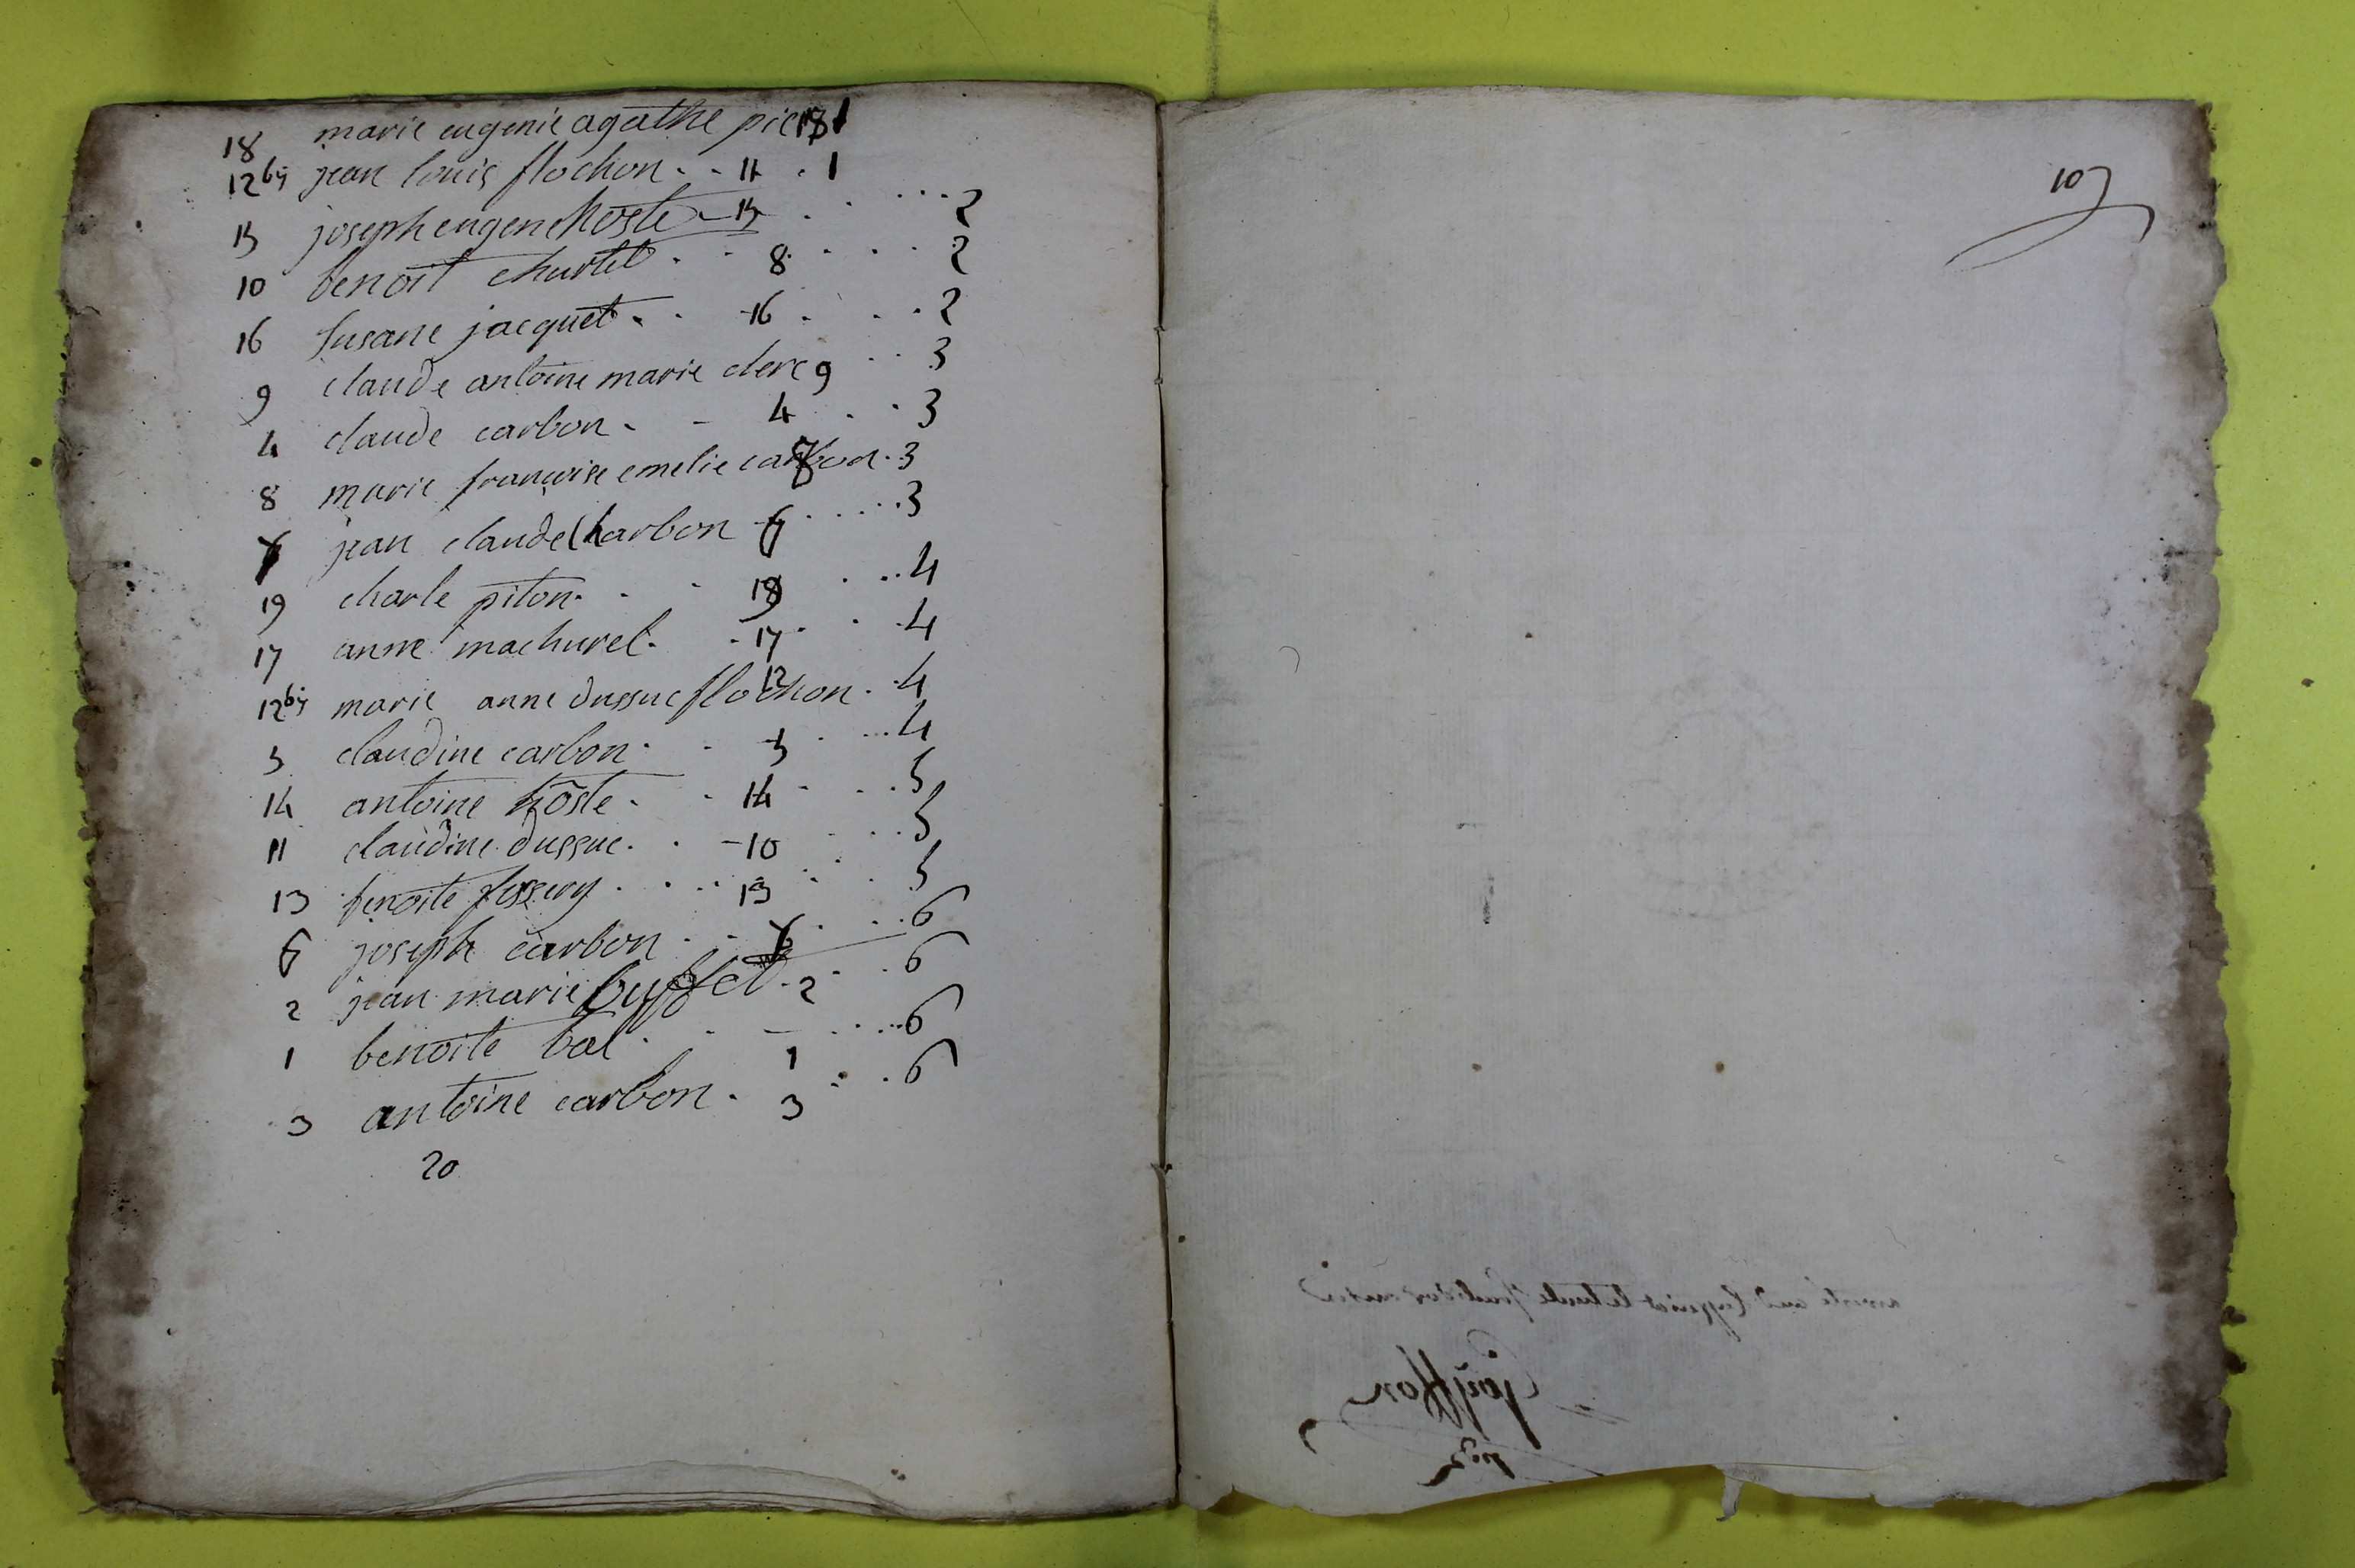 18 marie eugenie agathe pic 18 1
12bis jean louis flochon . . 11 . 1
15 joseph eugene hoste - 15 . . . . . 2
10 benoit churlet . . 8 . . . . 2
16 susane jacquet . . 16 . . . 2
9 claude antoine marie clerc 9 . . 3
4 claude carbon . - 4 . . 3
8 marie françoise emelie carbon . 3
7 jean claude Carbon 6 . . . . . . 3
19 charle piton . . . 19 . . . 4
17 anne machurel . . 17 . . . 4
12bis marie anne dussuc flochon 12 . . 4
5 claudine carbon . . 5 . . . . 4
14 antoine hôste . . 14 . . . 5
11 claudine dussuc . . - 10 . . . 5
13 benoite . . . . 13 . . . 5
6 joseph carbon . . 7 . . . 6
2 jean marie buffet . 2 . . 6
1 benoite bal . . - 1 . . . . 6
3 antoine carbon . 3 . . 6
20
10